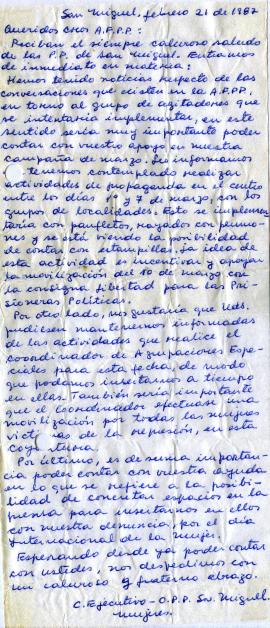 San Miguel, febrero 21 de 1987
Queridos cros A.F.P.P.:
Reciban el siempre caluroso saludo
de las P.P. de San Miguel. Entramos
de inmediato en materia:
Hemos tenido noticias respecto de las
conversaciones que existen en la A.F.P.P.
en torno al grupo de agitadores que
se intentaría implementar, en este
sentido sería muy importante poder
contar con vuestro apoyo en nuestra
campaña de marzo. Les informamos
tenemos contemplado realizar
actividades de propaganda en el centro
entre los días y 7 de marzo, con los
grupos de localidades. Esto se implemen-
taría con panfletos, rayados con plumo-
nes y se está viendo la posibilidad
de contar con estampillas. La idea de
esta actividad es incentivar y apoyar
la movilización del 10 de marzo con
la consigna libertad para las Pri-
sioneras Políticas.
Por otro lado, nos gustaría que Uds.
pudiesen mantenernos informadas
de las actividades que realice el
coordinador de Agrupaciones Espe-
ciales para esta fecha de modo
que podamos insertarnos a tiempo
en ellas. También sería importante
que el Coordinador efectuase una
movilización por todas las mujeres
víct as de la represión, en esta
coyuntura.
Por último, es de suma importan-
cia poder contar con vuestra ayuda
en lo que se refiere a la posibi-
lidad de concretar espacios en la
prensa para insertarnos en ellos
con nuestra denuncia, por el día
Internacional de la Mujer.
Esperando desde ya poder contar
con ustedes, nos despedimos con
un caluroso y fraterno abrazo.
C. Ejecutivo - O.P.P. Sn. Miguel.
mujeres.